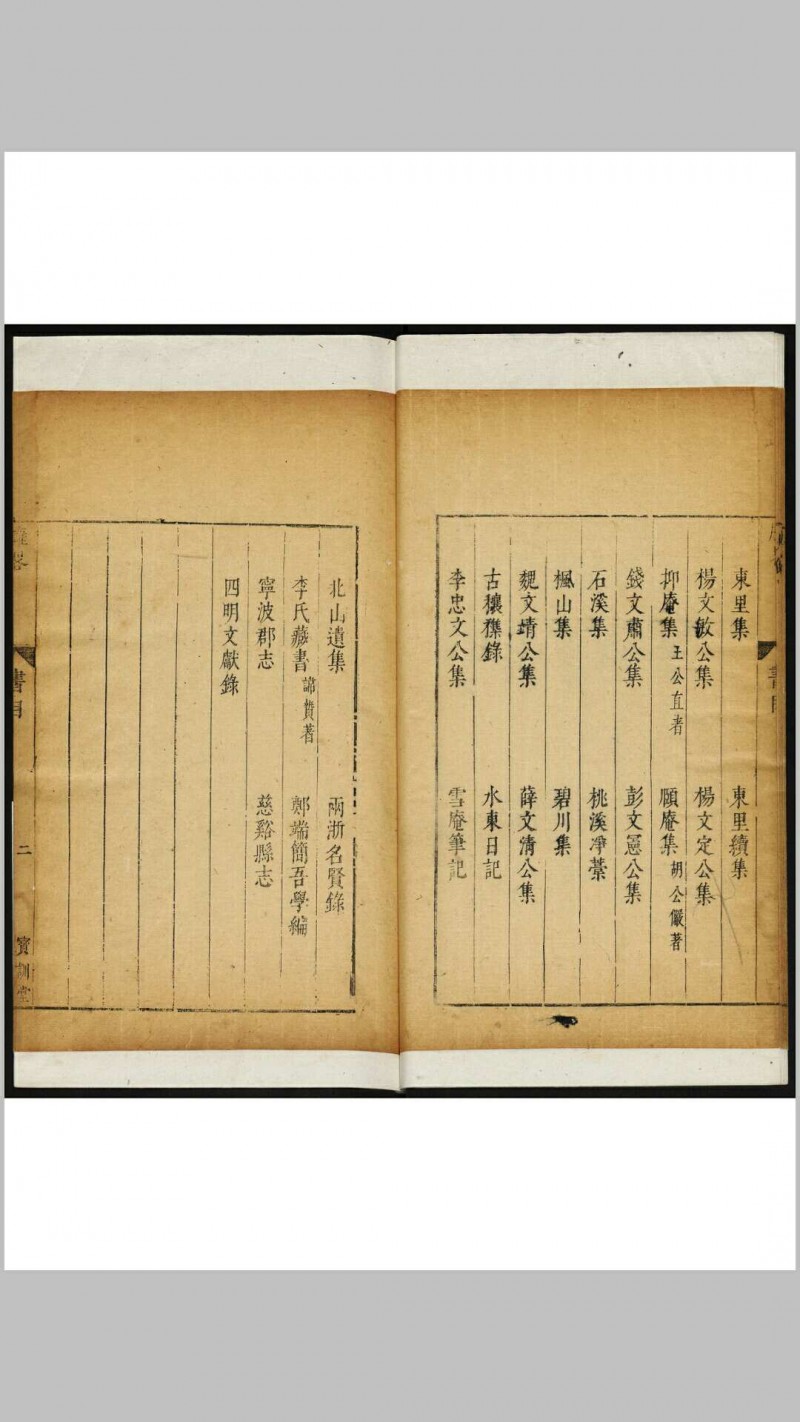 東里集 東里續集
楊文敏公集 楊文定公集
抑菴集 王公直者 頤庵集 胡公儼著
錢文肅公集 彭文憲公集
石溪集 桃溪凈藳
楓山集 碧川集
魏文靖公集 薛文清公集
古穰襍錄 水東日記
李忠文公集 雪庵筆記
北山遺集 兩浙名賢錄
李氏藏書 諱贄著 鄭端簡吾學編
寧波郡志 慈谿縣志
四明文獻錄
書目
二
寶訓堂